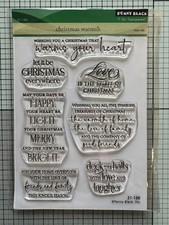 PENNY BLACK
christmas warmth
WISHING YOU A CHRISTMAS THAT
warms your heart
let it be
CHRISTMAS
everywhere
Love
IS THE SPIRIT OF
CHRISTMAS
MAY YOUR DAYS BE
HAPPY
YOUR HEART BE
LIGHT
YOUR CHRISTMAS
MERRY
AND NEW YEAR
BRIGHT
WISHING YOU ALL THE SIMPLE
TREASURES OF CHRISTMAS
the warmth of home
the love of family
AND THE COMPANY OF
good friends
MAY YOUR HOME OVERFLOW
WITH THE LOVE OF
friends and family
deck the halls
with love and
laughter